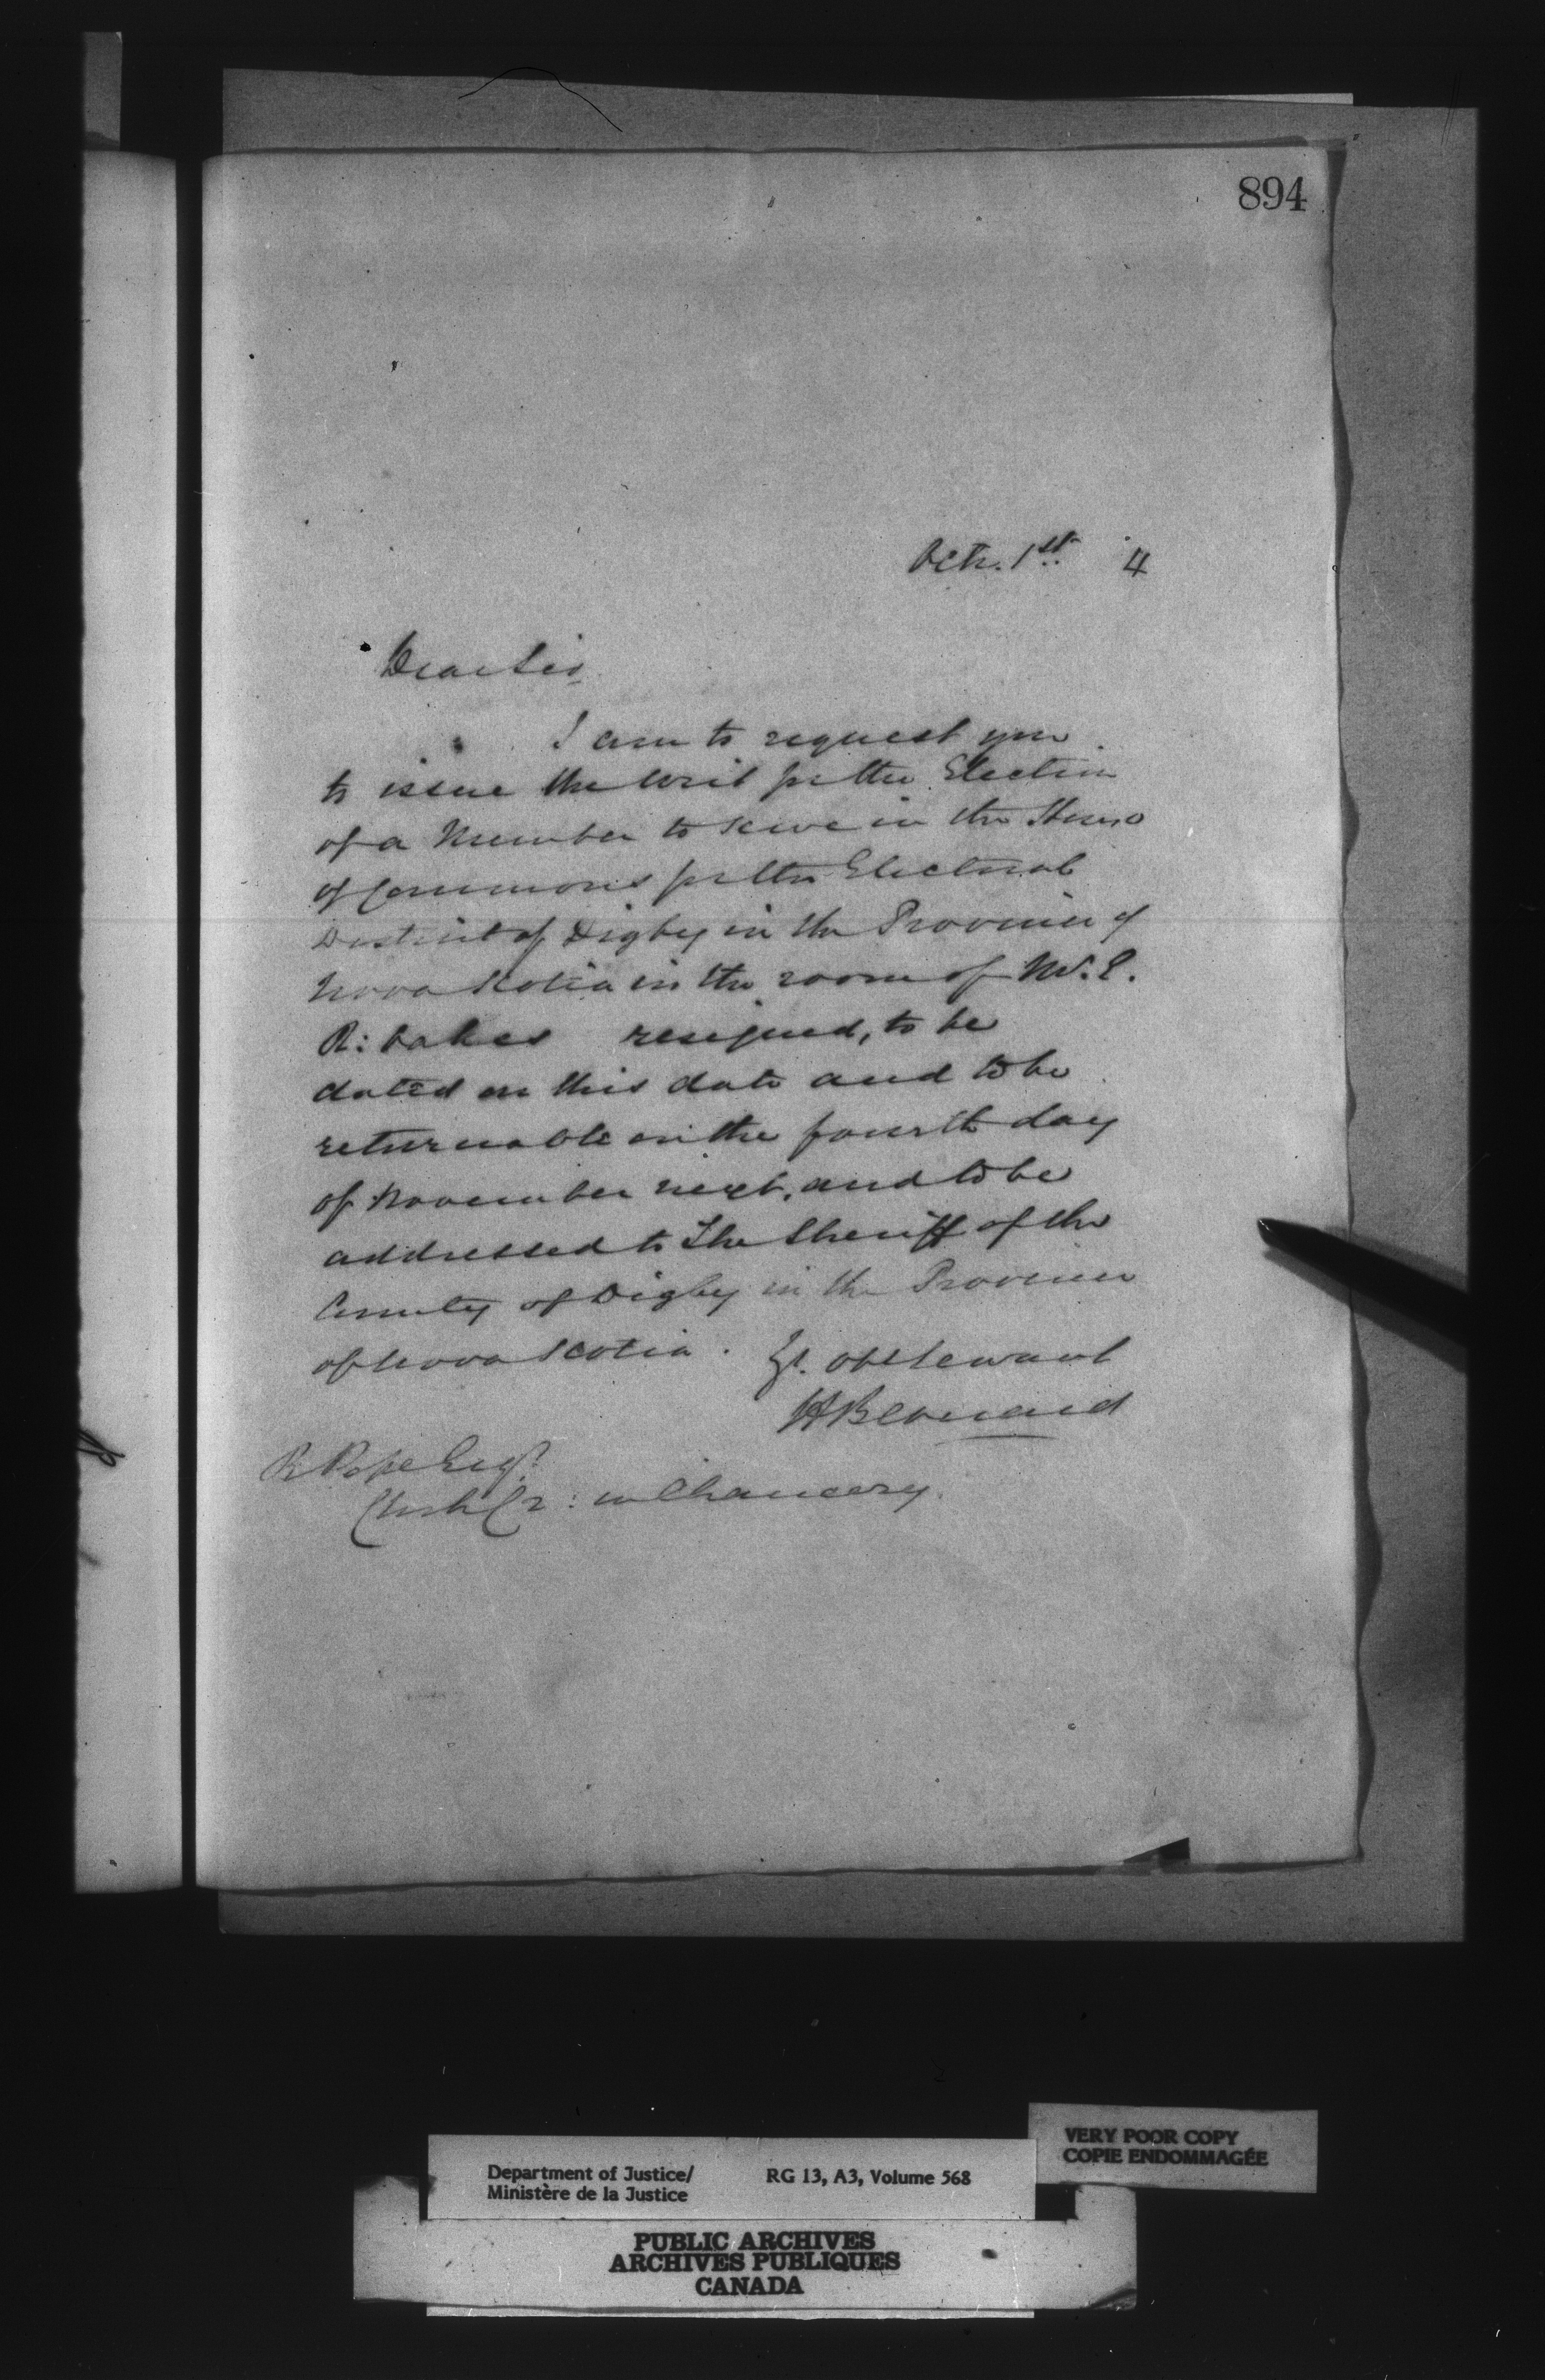 894
Octr. 1st. 4
Dear Sir,
I am to request you
to issue the writ for the Election
of a Member to serve in the House
of Commons for the Electoral
District of Digby in the Province of
Nova Scotia in the room of W. E.
R: Oakes resigned, to be
dated on this date and to be
returnable on the fourth day
of November next, and to be
addressed to The Sheriff of the
County of Digby in the Province
of Nova Scotia.
Yr. obt servant
HBernard
R Pope Esqr.
Clerk Cr: in Chancery.
VERY POOR COPY
COPIE ENDOMMAGÉE
Department of Justice/ RG 13, A3, Volume 568
Ministère de la Justice
PUBLIC ARCHIVES
ARCHIVES PUBLIQUES
CANADA